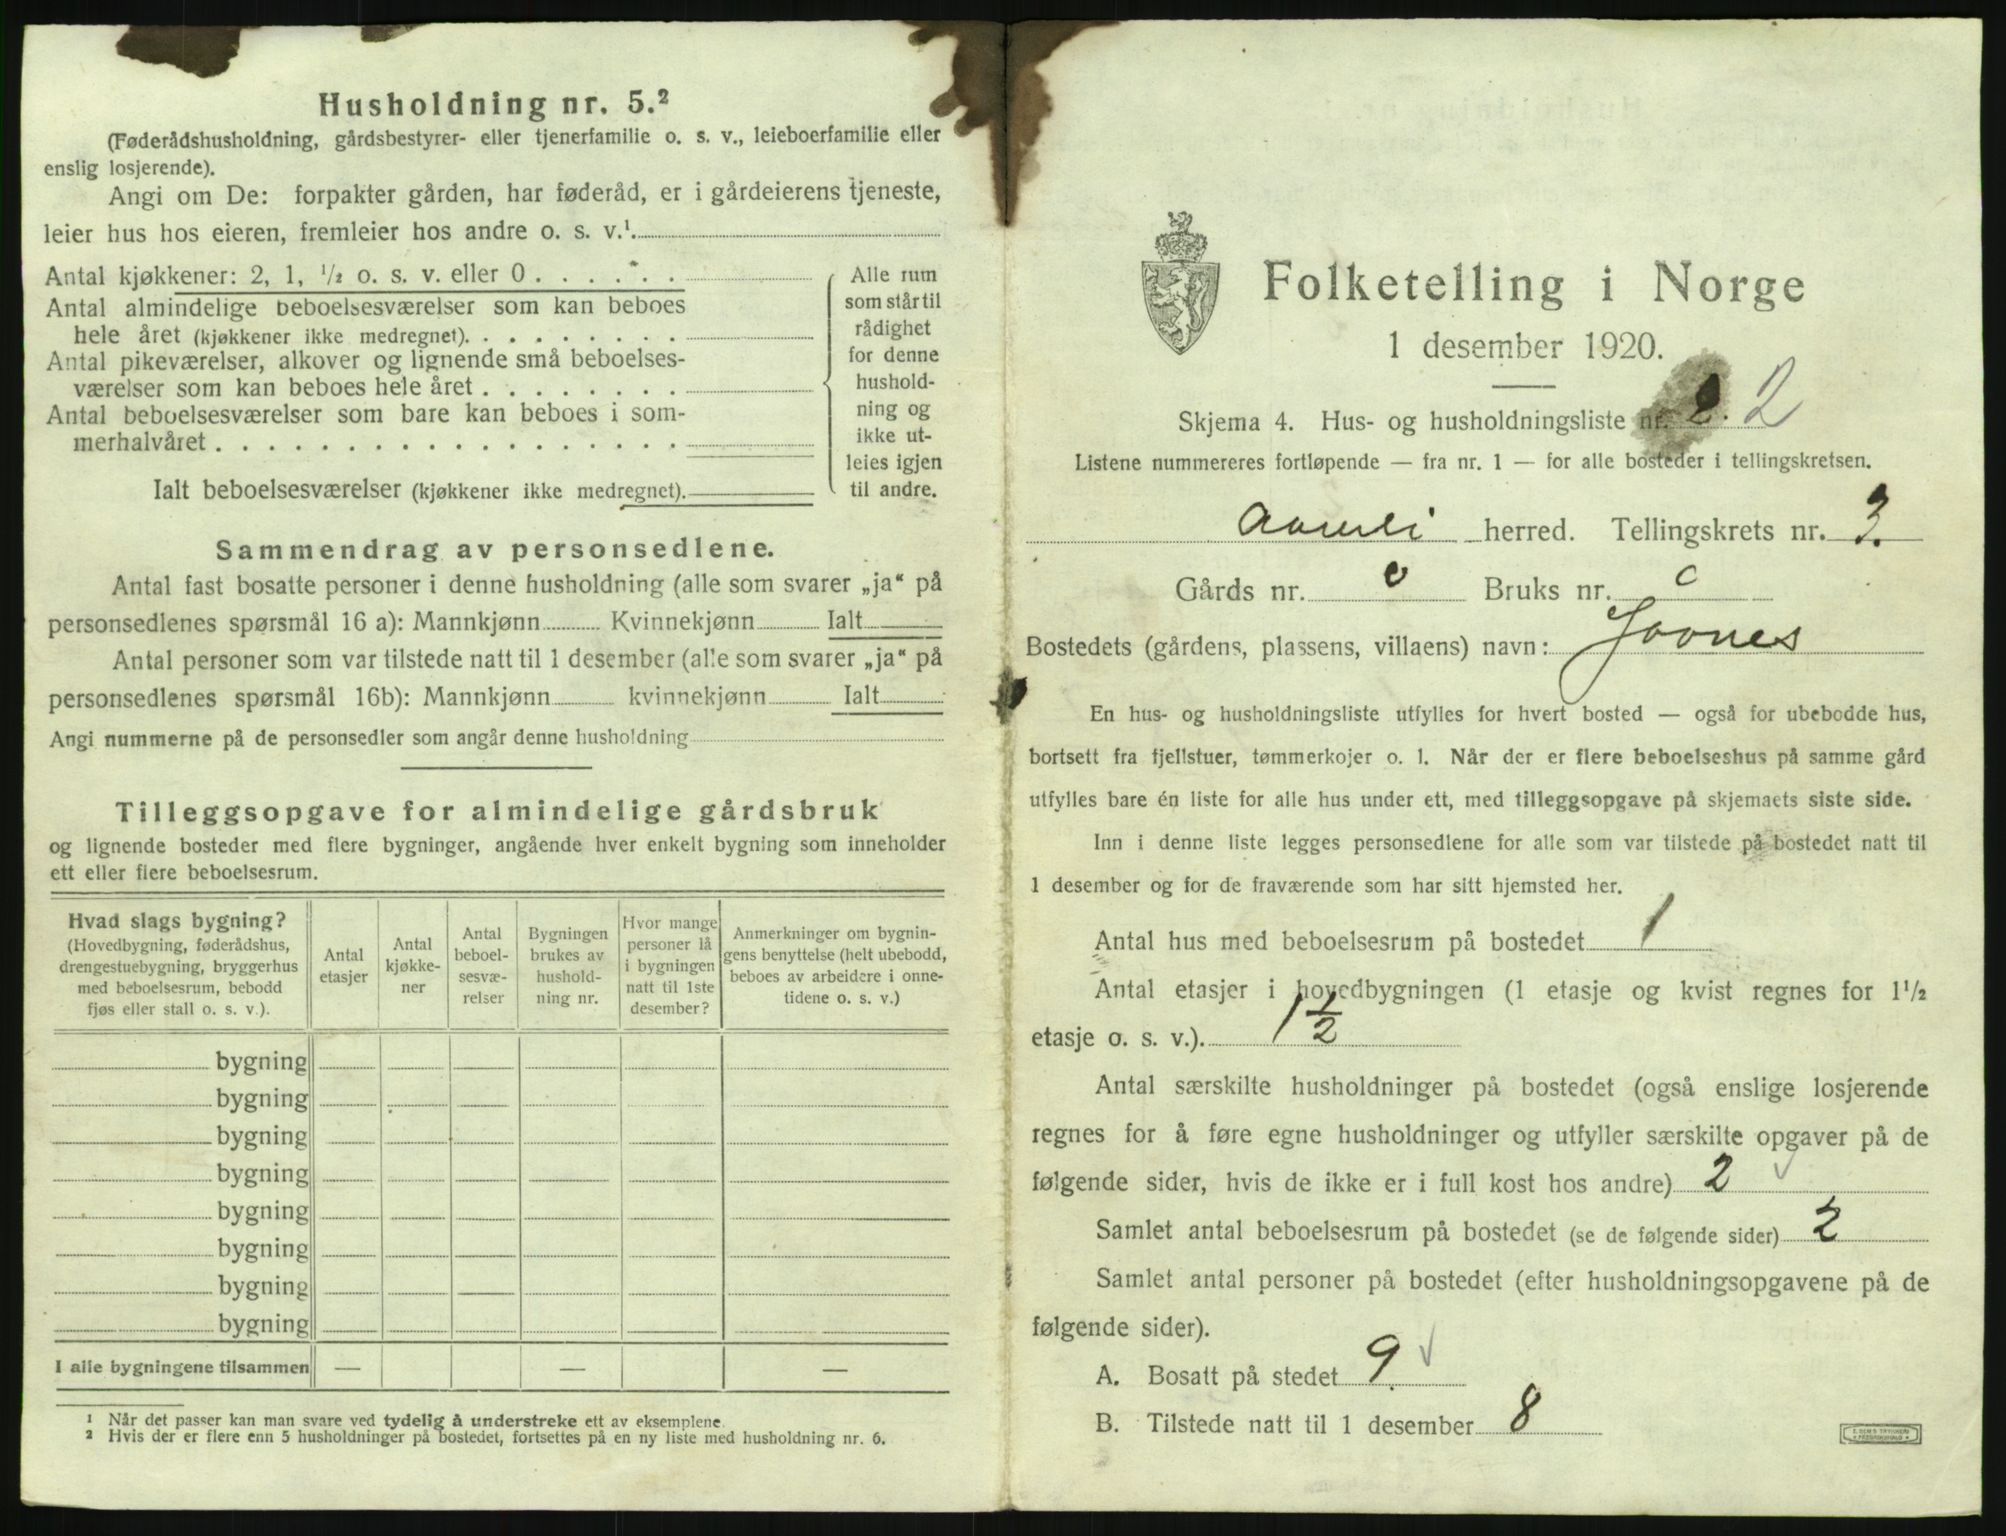 Husholdning nr. 5.²
(Føderådshusholdning, gårdsbestyrer- eller tjenerfamilie o. s. v., leieboerfamilie eller
enslig losjerende).
Angi om De: forpakter gården, har føderåd, er i gårdeierens tjeneste,
leier hus hos eieren, fremleier hos andre o. s. v.¹.
Antal kjøkkener: 2, 1, ¹/₂ o. s. v. eller 0 . . . . . .
Antal almindelige beboelsesværelser som kan beboes
hele året (kjøkkener ikke medregnet). . . . . . . . .
Antal pikeværelser, alkover og lignende små beboelses-
værelser som kan beboes hele året . . . . . . . .
Antal beboelsesværelser som bare kan beboes i som-
merhalvåret . . . . . . . . . . . . . . . . . .
Ialt beboelsesværelser (kjøkkener ikke medregnet).
Alle rum
som står til
rådighet
for denne
hushold-
ning og
ikke ut-
leies igjen
til andre.
Sammendrag av personsedlene.
Antal fast bosatte personer i denne husholdning (alle som svarer „ja“ på
personsedlenes spørsmål 16 a): Mannkjønn Kvinnekjønn Ialt
Antal personer som var tilstede natt til 1 desember (alle som svarer „ja“ på
personsedlenes spørsmål 16b): Mannkjønn kvinnekjønn Ialt
Angi nummerne på de personsedler som angår denne husholdning
Tilleggsopgave for almindelige gårdsbruk
og lignende bosteder med flere bygninger, angående hver enkelt bygning som inneholder
ett eller flere beboelsesrum.
Hvad slags bygning?
(Hovedbygning, føderådshus,
drengestuebygning, bryggerhus
med beboelsesrum, bebodd
fjøs eller stall o. s. v.).
Antal
etasjer
Antal
kjøkke-
ner
Antal
beboel-
sesvæ-
relser
Bygningen
brukes av
hushold-
ning nr.
Hvor mange
personer lå
i bygningen
natt til 1ste
desember?
Anmerkninger om bygnin-
gens benyttelse (helt ubebodd,
beboes av arbeidere i onne-
tidene o. s. v.)
bygning
bygning
bygning
bygning
bygning
bygning
bygning
bygning
I alle bygningene tilsammen — — —
¹ Når det passer kan man svare ved tydelig å understreke ett av eksemplene.
² Hvis der er flere enn 5 husholdninger på bostedet, fortsettes på en ny liste med husholdning nr. 6.
Folketelling i Norge
1 desember 1920.
Skjema 4. Hus- og husholdningsliste nr. 2. 2
Listene nummereres fortløpende — fra nr. 1 — for alle bosteder i tellingskretsen.
herred. Tellingskrets nr. 3.
Gårds nr. Bruks nr.
Bostedets (gårdens, plassens, villaens) navn:
En hus- og husholdningsliste utfylles for hvert bosted — også for ubebodde hus,
bortsett fra fjellstuer, tømmerkojer o. l. Når der er flere beboelseshus på samme gård
utfylles bare én liste for alle hus under ett, med tilleggsopgave på skjemaets siste side.
Inn i denne liste legges personsedlene for alle som var tilstede på bostedet natt til
1 desember og for de fraværende som har sitt hjemsted her.
Antal hus med beboelsesrum på bostedet 1
Antal etasjer i hovedbygningen (1 etasje og kvist regnes for 1¹/₂
etasje o. s. v.). 1 ½
Antal særskilte husholdninger på bostedet (også enslige losjerende
regnes for å føre egne husholdninger og utfyller særskilte opgaver på de
følgende sider, hvis de ikke er i full kost hos andre) 2 ✓
Samlet antal beboelsesrum på bostedet (se de følgende sider) 2
Samlet antal personer på bostedet (efter husholdningsopgavene på de
følgende sider).
A. Bosatt på stedet 9. ✓
B. Tilstede natt til 1 desember 8